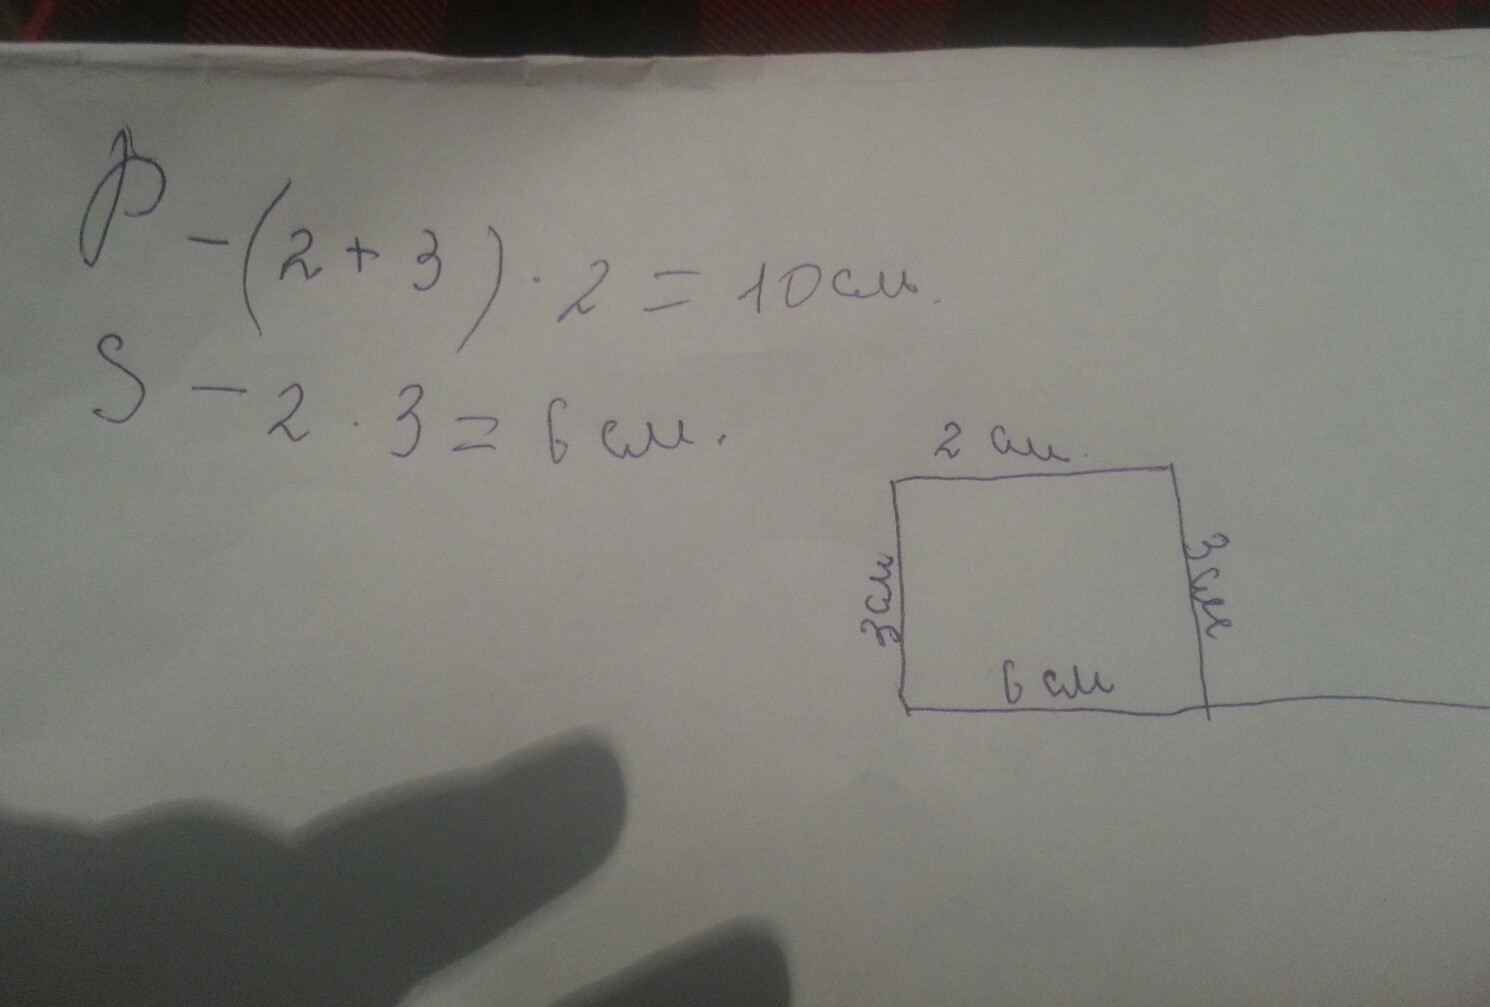 P - (2 + 3) · 2 = 10 см.
S - 2 · 3 = 6 см.
2 см.
3 см
3 см
6 см